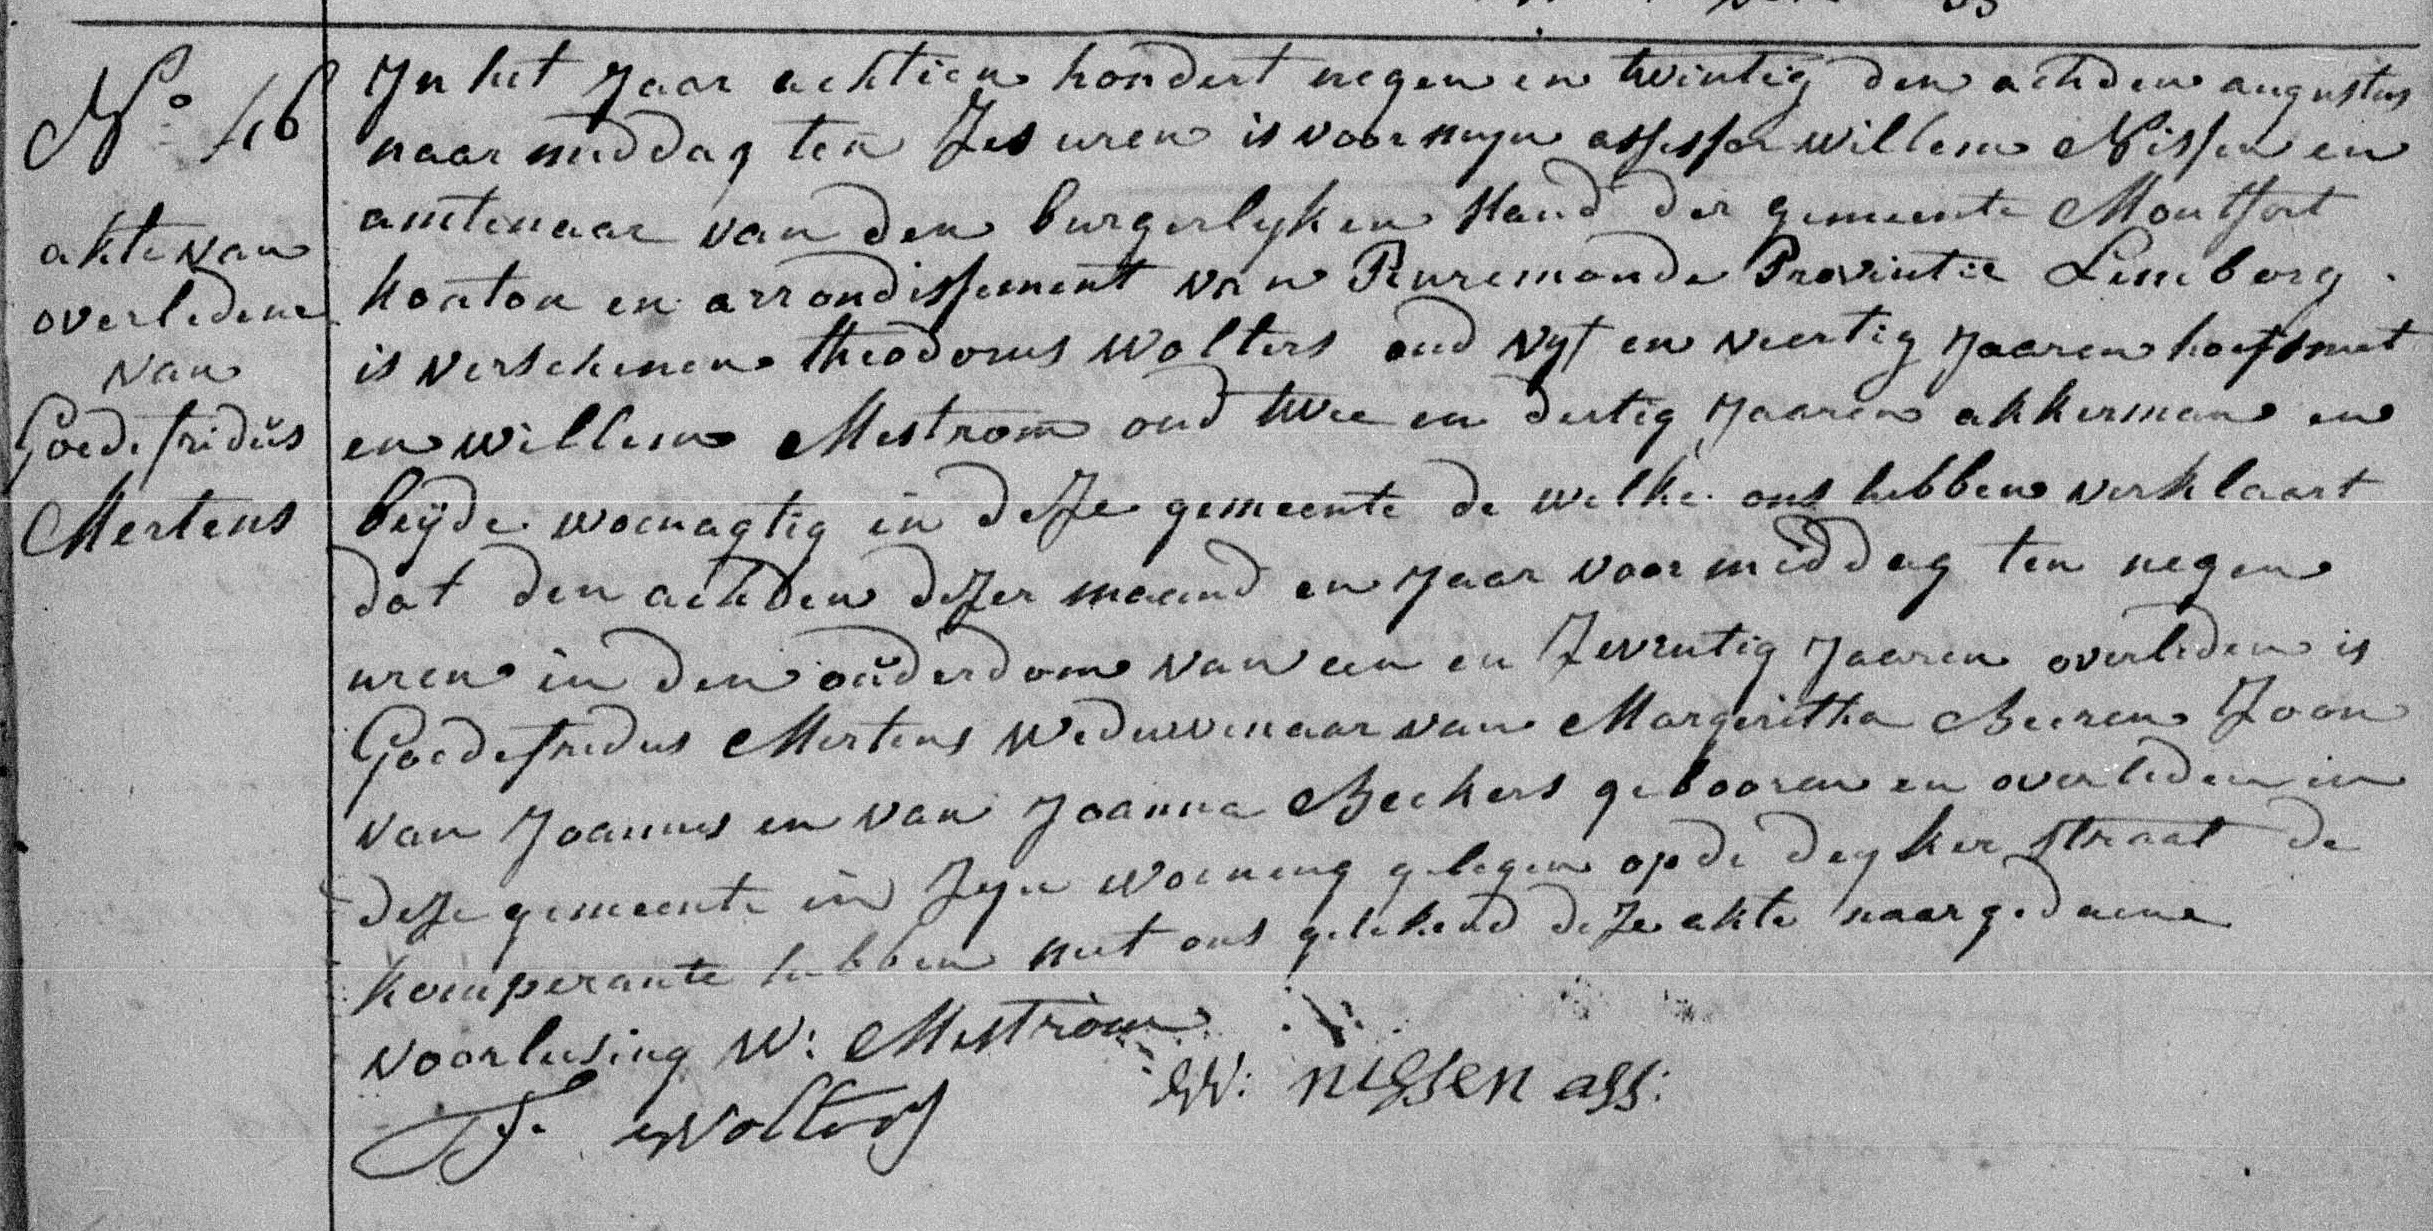 No 46
akte van
overledene
van
Goedefridus
Mertens
In het Jaar achtien hondert negen en twintig den achden augustus
naarmiddag ten Zes uren is voor mijn assessor willem Nissen en
amtenaar van den burgerlyken stand der gemeente Montfort
konton en arrondissement van Ruremonde Provintie Limborg.
is verschenen theodorus wolters oud vyf en veertig Jaaren hoefsmet
en willem Mestrom oud twee en dertig Jaaren akkerman en
beijde woenagtig in deze gemeente de welke ons hebben verklaart
dat den achden dezer maand en Jaar voormiddag ten negen
uren in den ouderdom van een en Zeventig Jaaren overleden is
Goedefridus Mertens weduwenaar van Margeritha Beeren Zoon
van Joannes en van Joanna Beckers gebooren en overleden in
deze gemeente in Zyn woening gelegen op de deyker straat de
komperante hebben met ons getekend deze akte naar gedaene
voorlesing W: Mestrom
W: nissen ass:
T. wolters